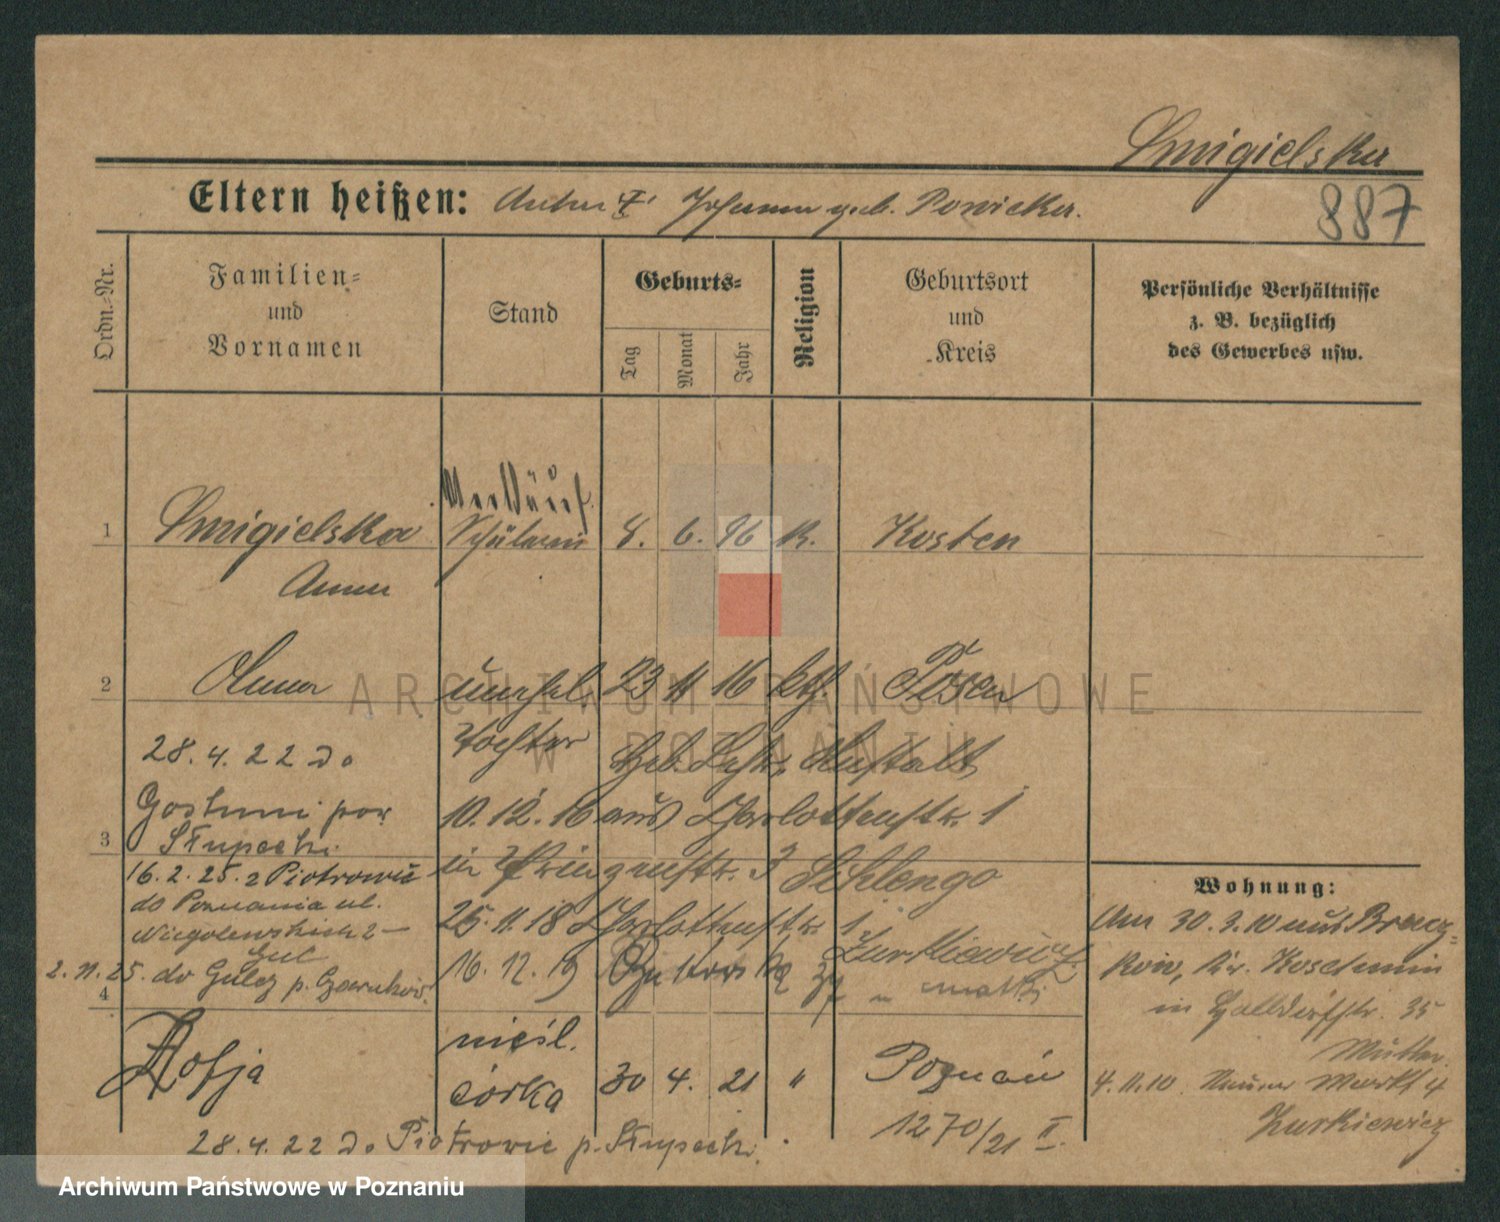 Smigielska
Eltern heißen: Anton I. Johanna geb. Powicka.
887
Ordn.-Nr.
Familien-
und
Vornamen
Stand
Geburts-
Tag
Monat
Jahr
Religion
Geburtsort
und
Kreis
Persönliche Verhältnisse
z. B. bezüglich
des Gewerbes usw.
1 Smigielska Schülerin 8. 6. 96 K. Kosten
Anna
2 Anna unehel. 23 11 16 kth. Posen
Tochter
28.4.22 do
Gostuni pow.
3 Słupecki
10.12.16 aus Charlottenstr. 1
in Prinzenstr. 3 Schlengo
16.2.25. z Piotrowic
do Poznania ul.
Niegolewskich 2
25.11.18 Charlottenstr. 1
Żurkiewicz
2.11.25. do Gulcz p. Czarnków.
4
16.12.19
matki
Zofja nieśl.
córka 30 4. 21 " Poznań
1270/21 II.
28.4.22 do Piotrowic p. Słupecki.
Wohnung:
Am 30.3.10 aus
Kr. Koschmin
in 35
Mutter
4.11.10 Neuer Markt 4
Zurkiewicz
ARCHIWUM PAŃSTWOWE
W POZNANIU
Archiwum Państwowe w Poznaniu